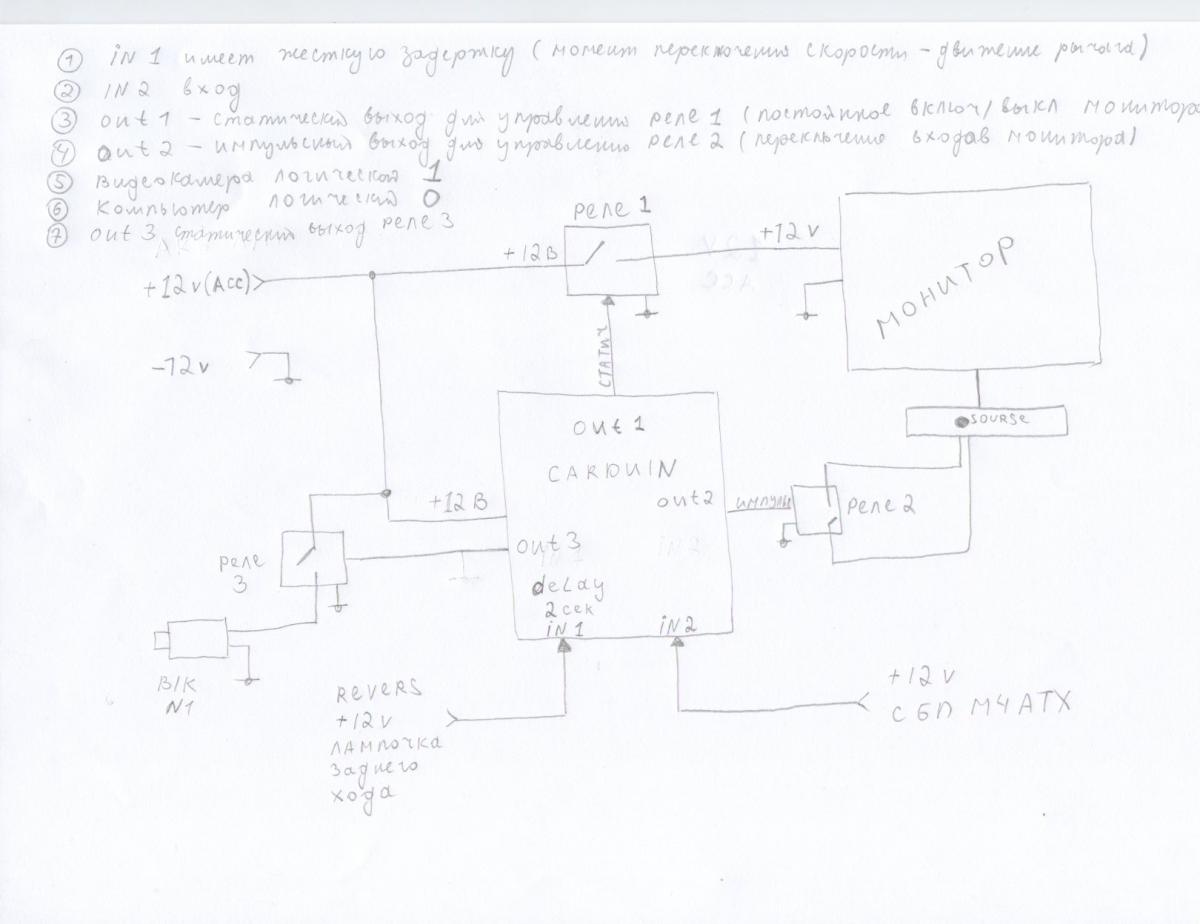 ① iN 1 имеет жесткую задержку (момент переключения скорости - движение рычага)
② IN 2 вход
③ out 1 - статический выход для управления реле 1 (постоянное включ/выкл монитора
④ out 2 - импульсный выход для управления реле 2 (переключение входав монитора)
⑤ видеокамера логический 1
⑥ компьютер логический 0
⑦ out 3 статический выход реле 3
реле 1
+12 v (Acc)
+12 В
+12 v
МОНИТОР
-12 v
СТАТИЧ
SOURSE
out 1
CARDUIN
out2
импульс
Реле 2
+12 В
out 3
реле
3
delay
2 сек
iN 1
iN 2
В/К
N1
REVERS
+12 v
лампочка
заднего
хода
+12 v
С БП M4 ATX